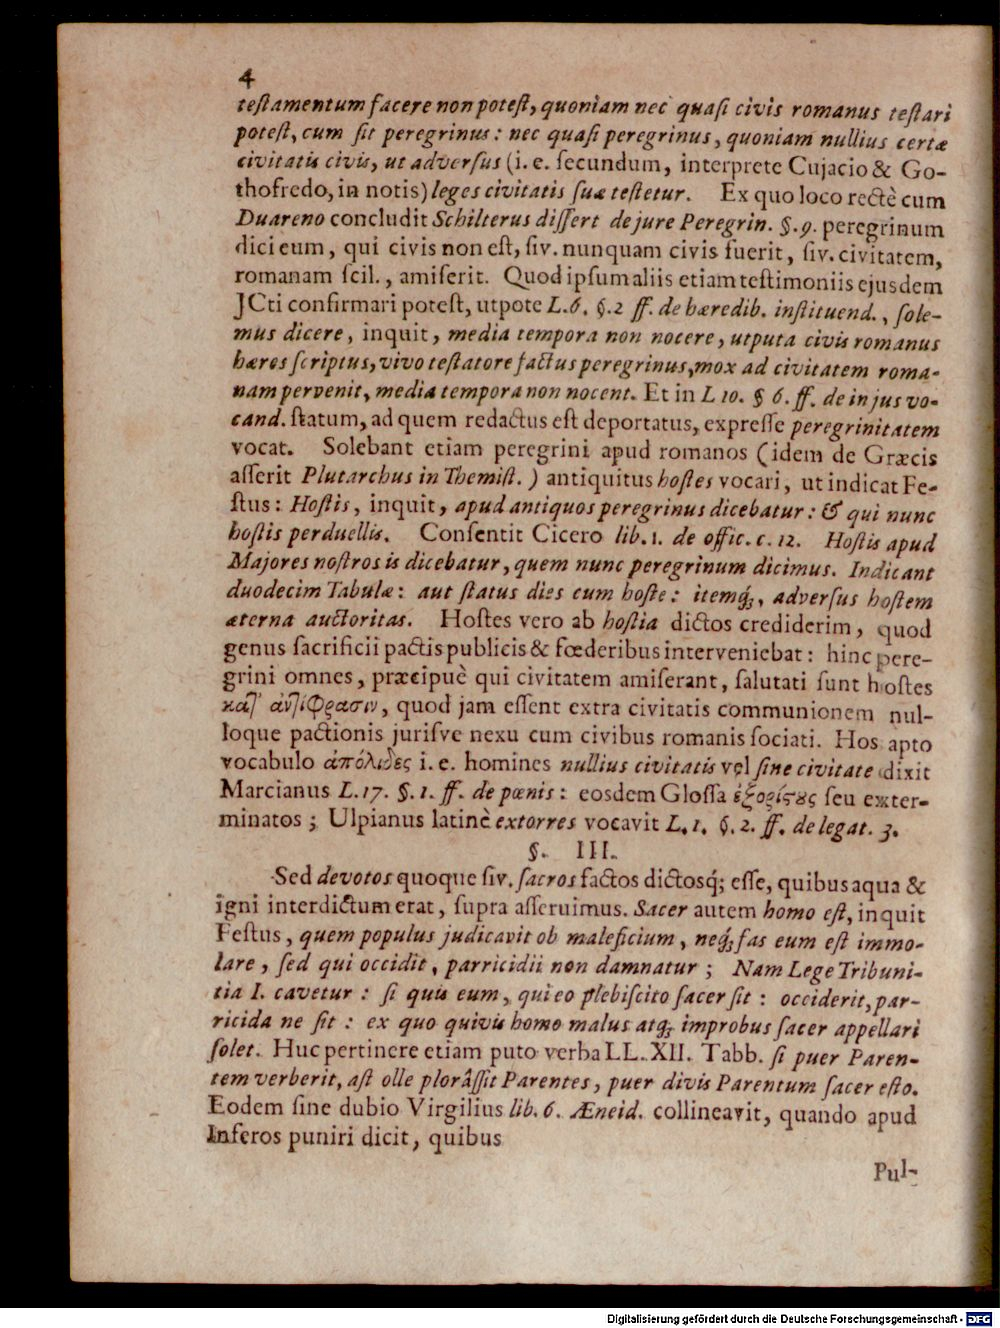 4
teſtamentum facere non poteſt, quoniam nec quaſi civis romanus teſtari
poteſt, cum ſit peregrinus: nec quaſi peregrinus, quoniam nullius certæ
civitatis civis, ut adverſus (i. e. ſecundum, interprete Cujacio & Go-
thofredo, in notis) leges civitatis ſuæ teſtetur. Ex quo loco rectè cum
Duareno concludit Schilterus diſſert de jure Peregrin. §. 9. peregrinum
dici eum, qui civis non eſt, ſiv. nunquam civis fuerit, ſiv. civitatem,
romanam ſcil., amiſerit. Quod ipſum aliis etiam teſtimoniis ejusdem
JCti confirmari poteſt, utpote L. 6. §. 2 ff. de hæredib. inſtituend., ſole-
mus dicere, inquit, media tempora non nocere, utputa civis romanus
hæres ſcriptus, vivo teſtatore factus peregrinus, mox ad civitatem roma-
nam pervenit, media tempora non nocent. Et in L 10. § 6. ff. de in jus vo-
cand. ſtatum, ad quem redactus eſt deportatus, expreſſe peregrinitatem
vocat. Solebant etiam peregrini apud romanos (idem de Græcis
aſſerit Plutarchus in Themiſt. ) antiquitus hoſtes vocari, ut indicat Fe-
ſtus: Hoſtis, inquit, apud antiquos peregrinus dicebatur: & qui nunc
hoſtis perduellis. Conſentit Cicero lib. 1. de offic. c. 12. Hoſtis apud
Majores noſtros is dicebatur, quem nunc peregrinum dicimus. Indicant
duodecim Tabulæ: aut ſtatus dies cum hoſte: itemq́;, adverſus hoſtem
æterna auctoritas. Hoſtes vero ab hoſtia dictos crediderim, quod
genus ſacrificii pactis publicis & fœderibus interveniebat: hinc pere-
grini omnes, præcipuè qui civitatem amiſerant, ſalutati ſunt hoſtes
κατ' ἀντίφρασιν, quod jam eſſent extra civitatis communionem nul-
loque pactionis juriſve nexu cum civibus romanis ſociati. Hos apto
vocabulo ἀπόλιδες i. e. homines nullius civitatis vel ſine civitate dixit
Marcianus L. 17. §. 1. ff. de pœnis: eosdem Gloſſa ἐξορίςους ſeu exter-
minatos; Ulpianus latinè extorres vocavit L. 1. §. 2. ff. de legat. 3.
§. III.
Sed devotos quoque ſiv. ſacros factos dictosq́; eſſe, quibus aqua &
igni interdictum erat, ſupra aſſeruimus. Sacer autem homo eſt, inquit
Feſtus, quem populus judicavit ob maleficium, neq́; fas eum eſt immo-
lare, ſed qui occidit, parricidii non damnatur; Nam Lege Tribuni-
tia I. cavetur: ſi quis eum, qui eo plebiſcito ſacer ſit: occiderit, par-
ricida ne ſit: ex quo quivis homo malus atq; improbus ſacer appellari
ſolet. Huc pertinere etiam puto verba LL. XII. Tabb. ſi puer Paren-
tem verberit, aſt olle plorâſſit Parentes, puer divis Parentum ſacer eſto.
Eodem ſine dubio Virgilius lib. 6. Æneid. collineavit, quando apud
Inferos puniri dicit, quibus
Pul-
Digitalisierung gefördert durch die Deutsche Forschungsgemeinschaft - DFG